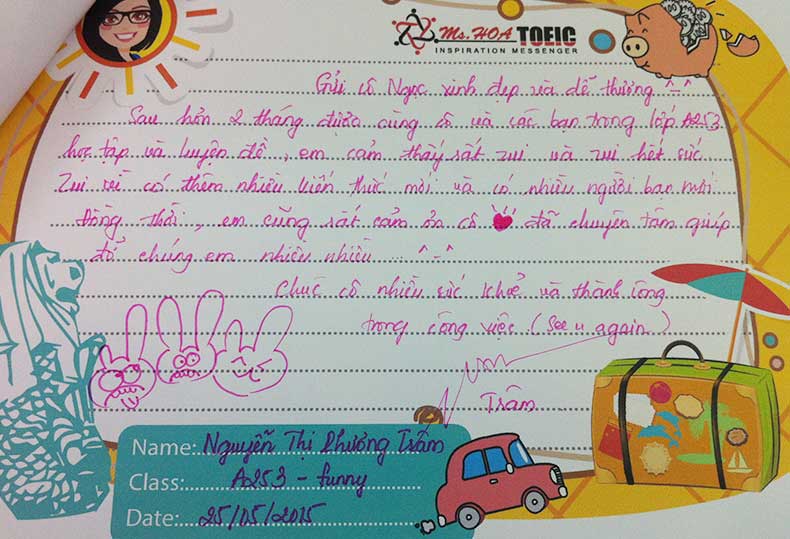 Ms. HOA TOEIC
INSPIRATION MESSENGER
Gửi cô Ngọc xinh đẹp và dễ thương ^-^
Sau hơn 2 tháng được cùng cô và các bạn trong lớp A253
học tập và luyện đề, em cảm thấy rất zui và zui hết sức.
Zui vì có thêm nhiều kiến thức mới và có nhiều người bạn mới.
Đồng thời, em cũng rất cảm ơn cô ♥ đã chuyên tâm giúp
đỡ chúng em nhiều nhiều ... ^-^
Chúc cô nhiều sức khoẻ và thành công
trong công việc (See u again)
Trâm
Name: Nguyễn Thị Phương Trâm
Class: A253 - funny
Date: 25/05/2015